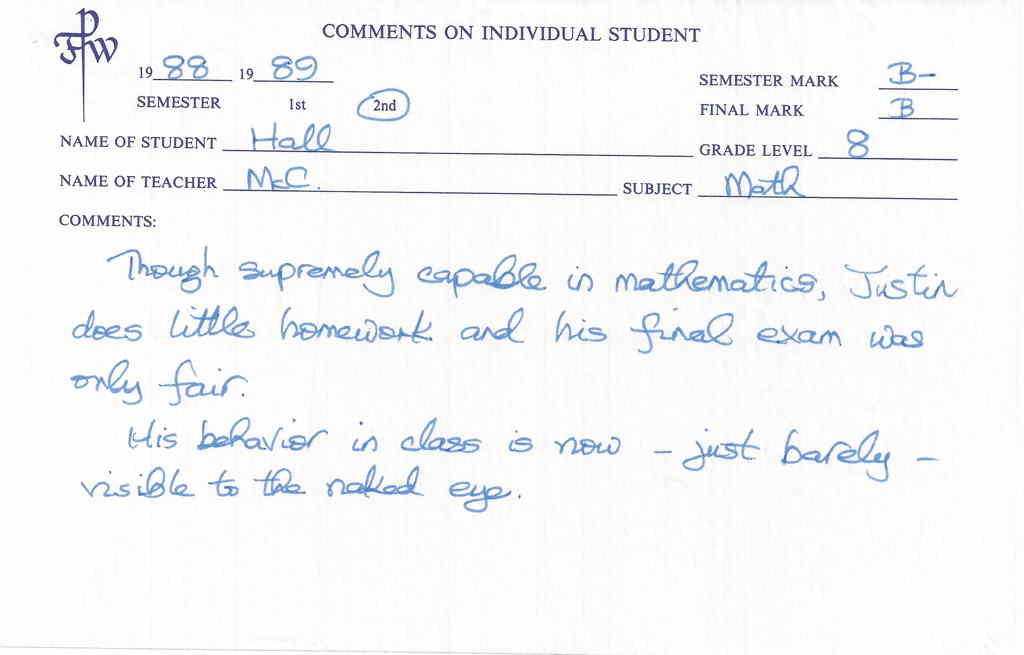 FPW
COMMENTS ON INDIVIDUAL STUDENT
19 88 19 89
SEMESTER MARK B-
SEMESTER 1st 2nd
FINAL MARK B
NAME OF STUDENT Hall
GRADE LEVEL 8
NAME OF TEACHER McC.
SUBJECT Math
COMMENTS:
Though supremely capable in mathematics, Justin
does little homework and his final exam was
only fair.
His behavior in class is now - just barely -
visible to the naked eye.